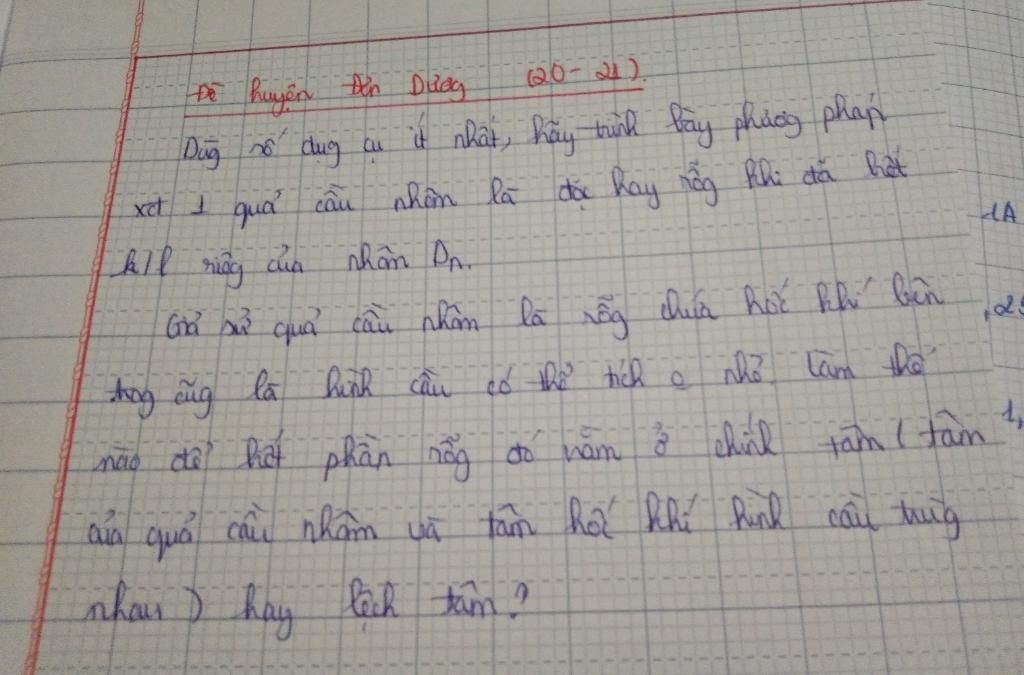 Đề huyện Đơn Dương (20-21).
Dùg số dụg cụ ít nhất, hãy trình bày phươg pháp
xét 1 quả cầu nhôm là đặc hay rỗg khi đã biết
kll riêg của nhôm Dn.
Giả sử quả cầu nhôm là rỗg chứa hốc khí bên
trog cũg là hình cầu có thể tích o nhỏ. Làm thế
nào để biết phần rỗg đó nằm ở chính tâm ( tâm
của quả cầu nhôm và tâm hốc khí hình cầu trùg
nhau ) hay lệch tâm?
1A
1,